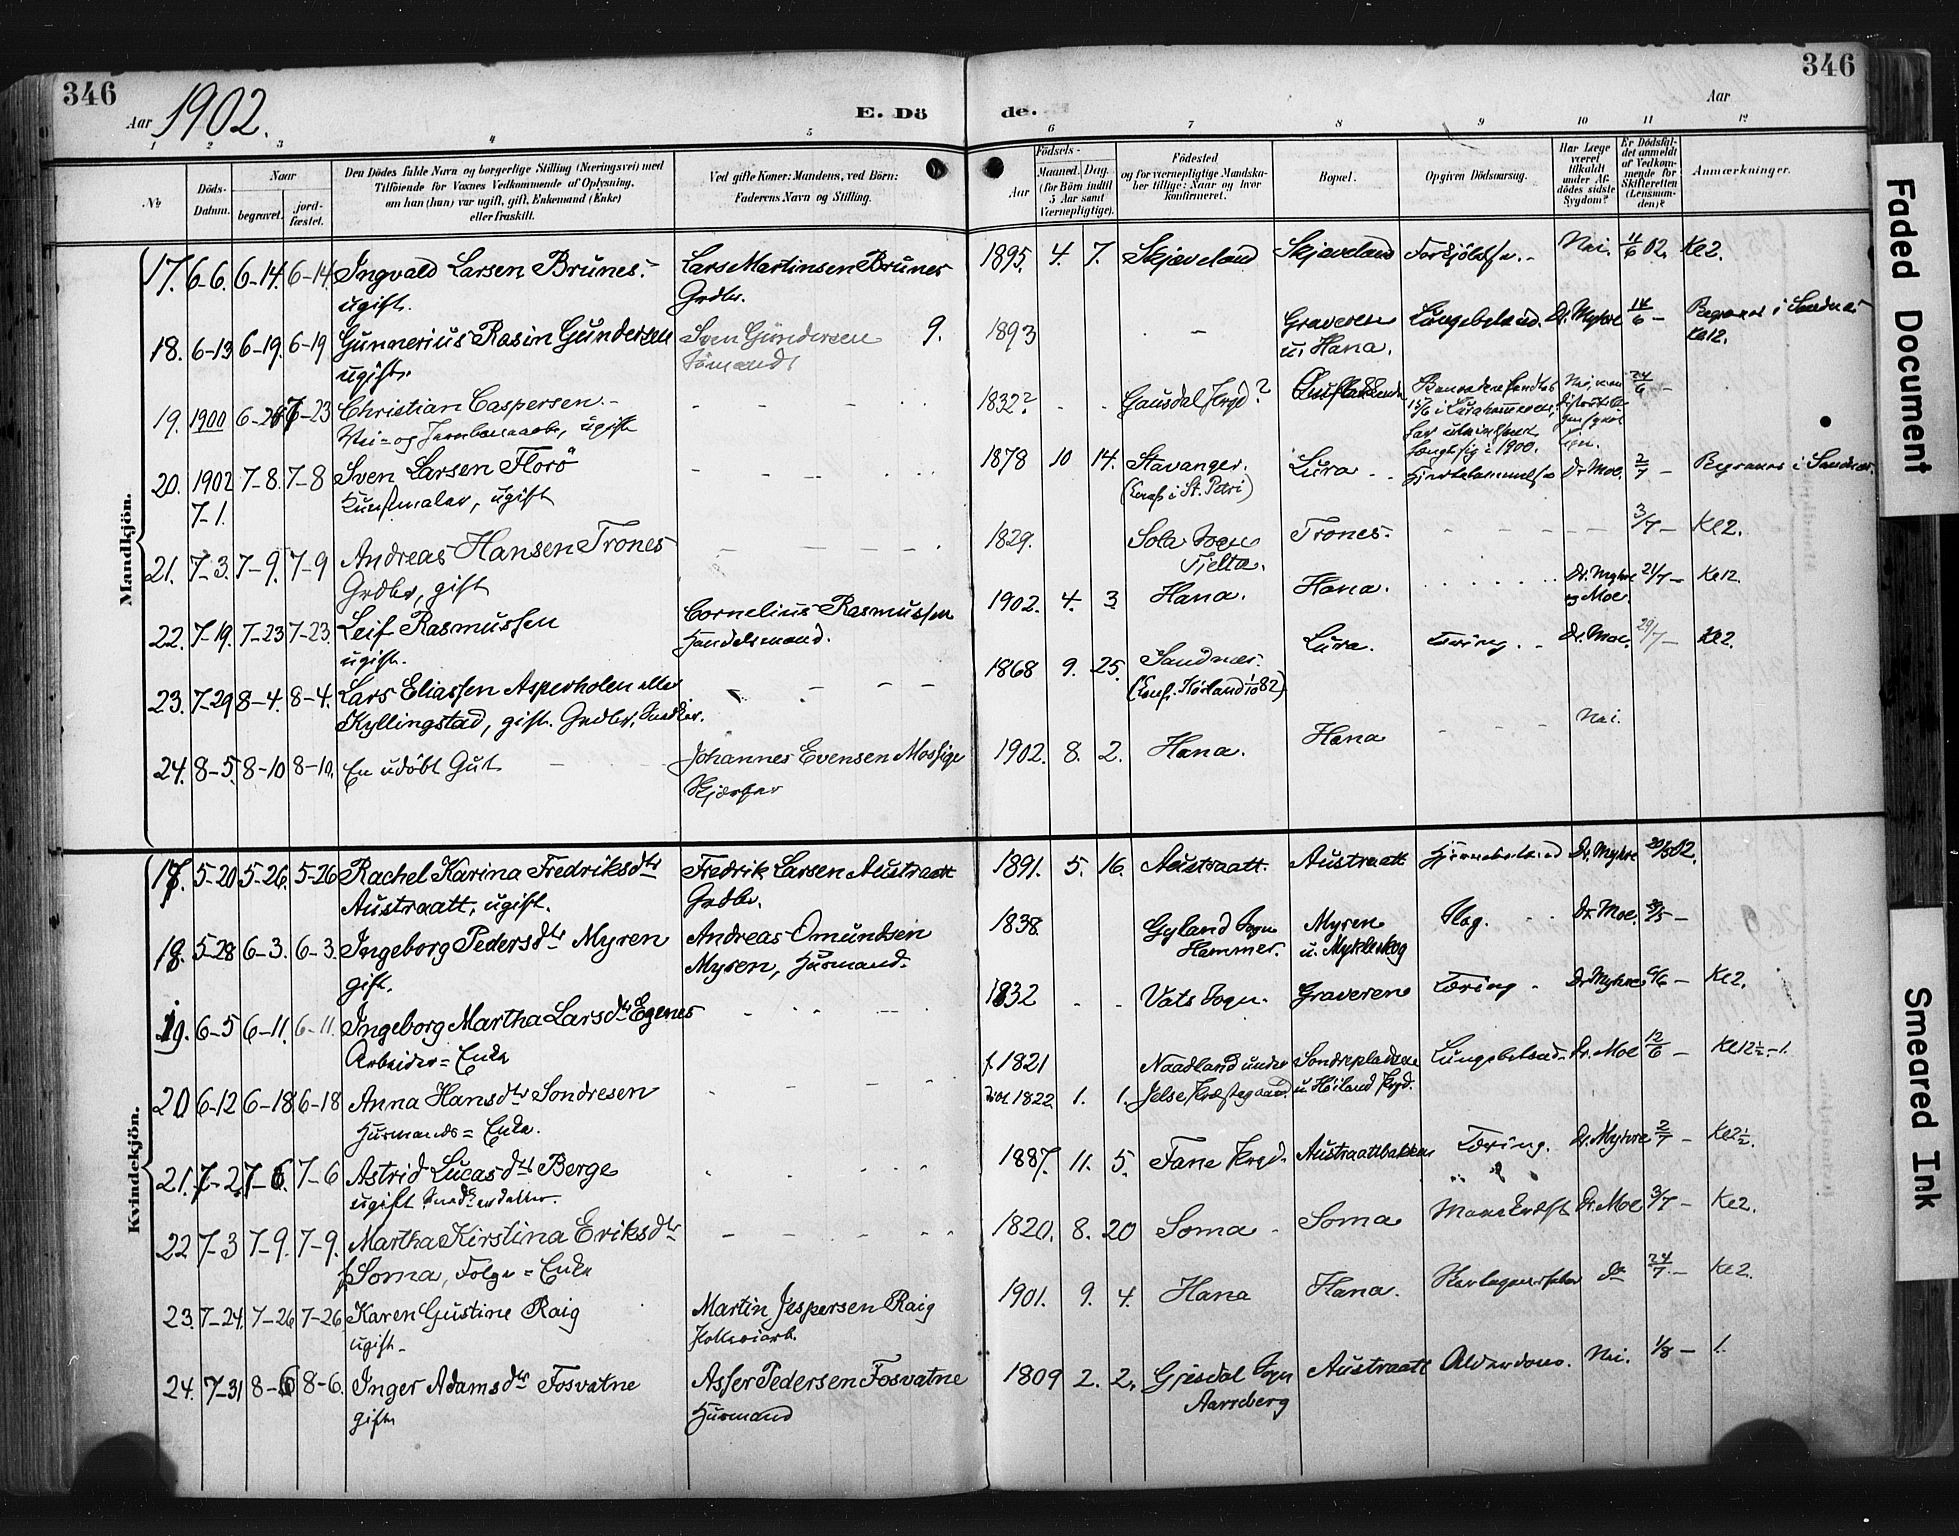 346
346
Aar 1902.
E. Döde.
Aar
1 2 3 4 5 6 7 8 9 10 11 12
No
Döds-Datum.
Naar
begravet.
jord-fæstet.
Den Dödes fulde Navn og borgerlige Stilling (Næringsvei) med
Tilföiende for Voxnes Vedkommende af Oplysning,
om han (hun) var ugift, gift, Enkemand (Enke)
eller fraskilt.
Ved gifte Koner: Mandens, ved Börn:
Faderens Navn og Stilling.
Födsels-
Aar
Maaned. Dag.
(for Börn indtil
5 Aar samt
Værnepligtige).
Födested
og for værnepligtige Mandska-
ber tillige: Naar og hvor
konfirmeret.
Bopæl.
Opgiven Dödsaarsag.
Har Læge
været
tilkaldt
under Af-
dödes sidste
Sygdom?
Er Dödsfal-
det anmeldt
af Vedkom-
mende for
Skifteretten
(Lensman-
den)?
Anmærkninger.
Mandkjön.
17. 6-6. 6-14. 6-14 Ingvald Larsen Brunes.- Lars Martinsen Brunes 1895. 4. 7. Skjæveland Skjæveland Nei. 11/6 02. Kl 2.
ugift. Grdbr.
18. 6-13 6-19. 6-19 Gunnerius Rasin Gundersen Sven Gundersen 9. 1893 - Graveren Lungebetænd. Dr. Myhre 14/6 - Begraves i Sandnes
ugift. Sömand u. Hana. Kl 12.
19. 1900 6-23 Christian Caspersen.- 1832? Gausdal Prgd? 24/6 -
Vei- og Jernbanearb., ugift
i 1900.
20. 1902 7-8. 7-8 Sven Larsen Florö 1878 10 14. Stavanger. Lura Hjertelammelse Dr. Moe. 2/7 - Begraves i Sandnes.
7-1. Kunstmaler, ugift (Conf. i St. Petri)
21. 7-3. 7-9. 7-9 Andreas Hansen Trones 1829. Sola Sogn Trones. 3/7 - Kl 2.
Grdbr, gift Tjelta.
22. 7-19. 7-23 7-23. Leif Rasmussen Cornelius Rasmussen 1902. 4. 3 Hana. Hana. Dr. Myhre og Moe. 21/7 - Kl 12.
ugift. Handelsmand.
23. 7-29 8-4. 8-4. Lars Eliassen Asperholen eller 1868 9. 25. Sandnes. Lura. Tæring. Dr. Moe. 29/7 - Kl 2.
Kyllingstad, gift. Grdbr, Snedker. (Conf. Höiland 1/10 82)
24. 8-5. 8-10 8-10. En udöbt Gut Johannes Evensen Mossige 1902. 8. 2. Hana. Hana Nei.
Kvindekjön.
17. 5-20 5-26. 5-26 Rachel Karina Fredriksdtr Fredrik Larsen Austraatt 1891. 5. 16. Austraatt. Austraatt Hjernebetænd Dr. Myhre 20/5 02.
Austraatt, ugift. Grdbr.
18. 5-28 6-3. 6-3. Ingeborg Pedersdtr Myren Andreas Omundsen 1838. Gyland Sogn Myren Slag. Dr. Moe. 30/5 -
gift. Myren, Husmand. Hammer. u. Mykleskog
19. 6-5 6-11. 6-11. Ingeborg Martha Larsdtr Egenes 1832 Vats Sogn. Graveren Tæring Dr. Myhre 6/6 - Kl 2.
Arbeider-Enke
20 6-12 6-18 6-18 Anna Hansdtr Sondresen f. 1821 Naadland under Sondrepladsen Lungebetænd. Dr. Moe 12/6 - Kl 12½-1.
Husmands-Enke. 1822 1. 1. Jelse Præstegaard. u. Höiland Prgd.
21. 7-2. 7-6. 7-6 Astrid Lucasdtr Berge 1887. 11. 5. Fane Prgd. Austraattbakken Tæring. Dr. Myhre 2/7 - Kl 2½.
ugift
22 7-3 7-9. 7-9. Martha Kirstina Eriksdtr 1820. 8. 20 Soma Soma Dr. Moe 3/7 - Kl 2.
f. Soma, Folge-Enke
23. 7-24. 7-26 7-26. Karen Gustine Raig Martin Jespersen Raig 1901. 9. 4. Hana Hana. Skarlagensfeber do 24/7. - Kl 2.
ugift- Potteriarb.
24. 7-31 8-6 8-6. Inger Adamsdtr Fosvatne Asser Pedersen Fosvatne 1809 2. 2. Gjesdal Sogn Austraatt Alderdom. Nei. 1/8 - 1.
gift Husmand Aarreberg
Faded Document
Smeared Ink